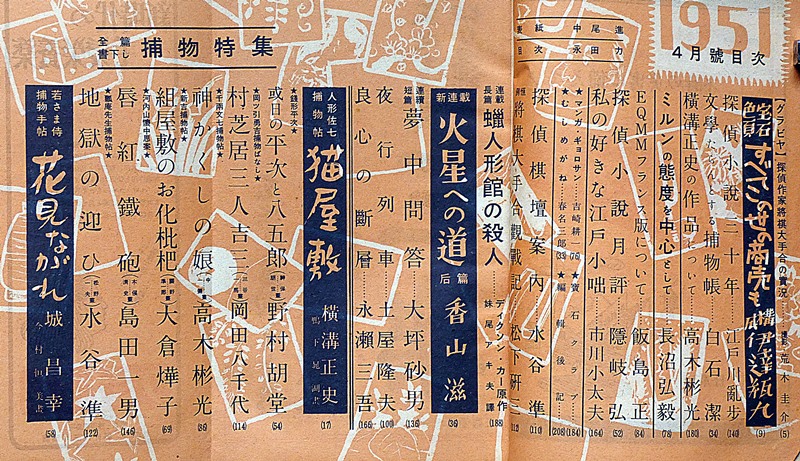 1951
4月號目次
表紙 中尾進
目次 永田力
〔グラビヤ〕探偵作家將棋大手合の實況 荒木圭介(5)
宝石色眼 すべてこの世の商売も 構成 伊達瓶九(9)
探偵小説三十年 江戸川亂歩(140)
文學だらんとする捕物帳 白石潔(34)
横溝正史の作品について 高木彬光(180)
ミルンの態度を中心として 長沼弘毅(78)
EQMMフランス版について 飯島正(84)
探偵小説月評 隱岐弘(52)
私の好きな江戸小咄 市川小太夫(164)
★マンガ・ギョロサン 吉崎耕一(76)★寶石クラブ(184)
★むしめがね 春名三郎(33)★編輯後記(208)
探偵棋壇案内 水谷準(110)
將棋大手合觀戰記 松下研三(112)
連載長篇 蠟人形館の殺人 ディクソン・カー原作 妹尾アキ夫譯(188)
新連載 火星への道 后篇 香山滋(36)
連續短篇 夢中問答 大坪砂男(136)
夜行列車 土屋隆夫(100)
良心の斷層 永瀬三吾(166)
全篇書下し 捕物特集
人形佐七捕物帖 猫屋敷 横溝正史 鴨下晁湖畫(17)
★錢形平次★
或日の平次と八五郎 野村胡堂(54)
★岡ッ引勇吉捕物ばなし★
村芝居三人吉三 岡田八千代(114)
★千両文七捕物帖★
神かくしの娘 高木彬光(86)
★新五捕物帖★
組屋敷のお化枇杷 大倉燁子(69)
★河内山懐中悪案★
唇紅鐵砲 島田一男(146)
★瓢庵先生捕物帖★
地獄の迎ひ 水谷準(122)
若さま侍捕物手帖 花見ながれ 城昌幸 今村恒美畫(58)